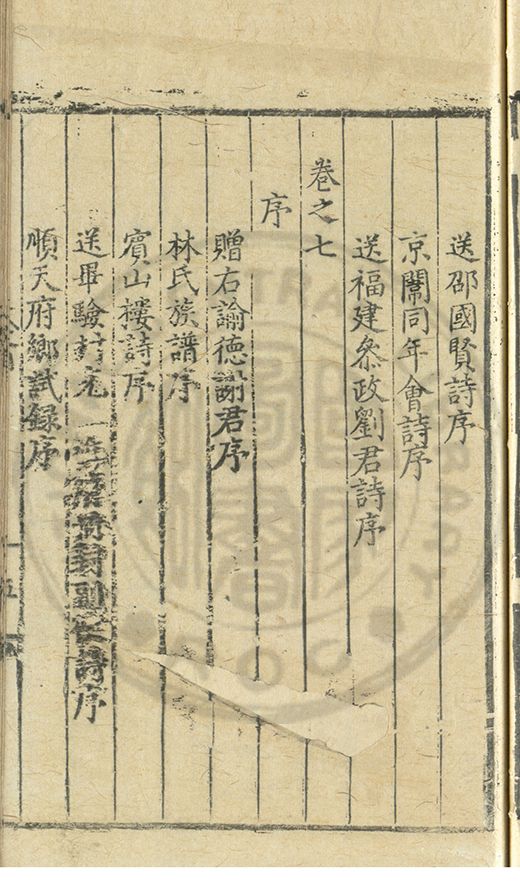 送邵國賢詩序
京闈同年會詩序
送福建叅政劉君詩序
卷之七
序
贈右諭德謝君序
林氏族譜序
賓山樓詩序
送畢驗封 詩序
順天府鄉試録序
五